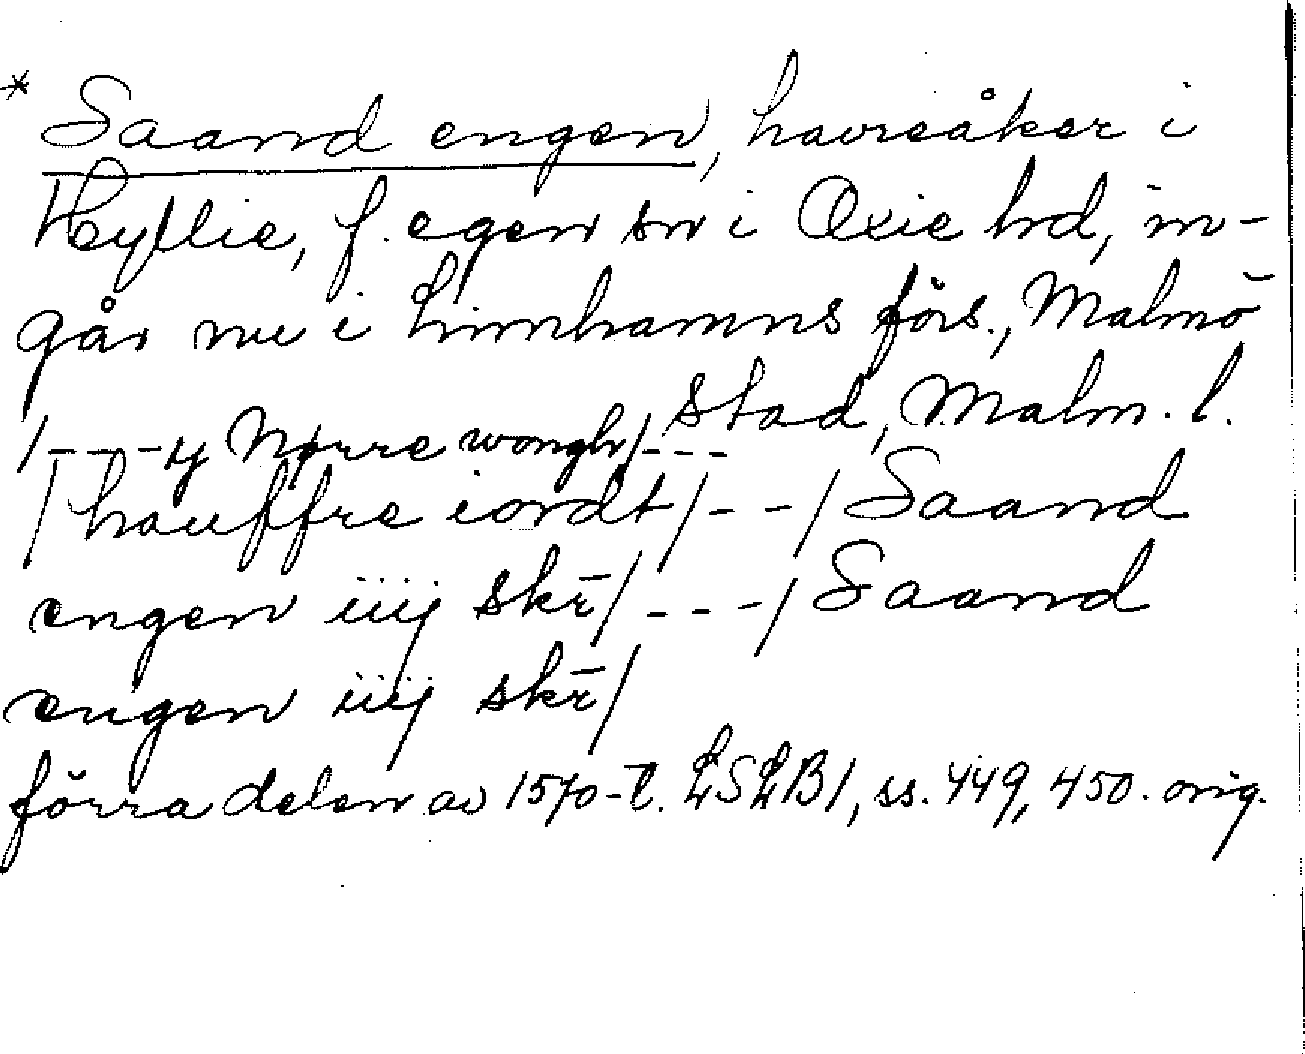 * Saand engen, havreåker i
Hyllie, f. egen sn i Oxie hd, in-
går nu i Limhamns förs., Malmö
stad, Malm. l.
/---y Nørre wongh/---
/hauffre iordt/--/Saand
engen iiij skr̄/---/Saand
engen iiij skr̄/
förra delen av 1570-t. LSLB1, ss. 449, 450. orig.